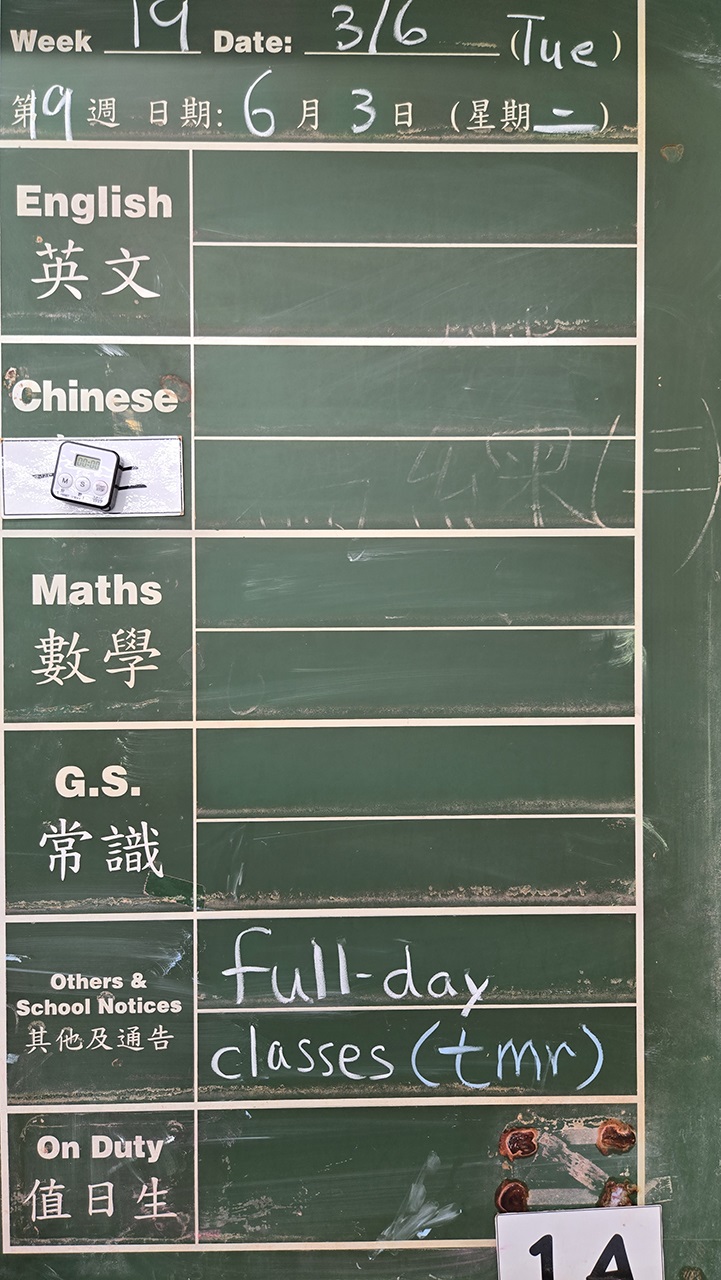 Week 19 Date: 3/6 (Tue)
第19週 日期: 6月3日 (星期二)
English
英文
Chinese
Maths
數學
G.S.
常識
Others &
School Notices
其他及通告
full-day
classes (tmr)
On Duty
值日生
1A